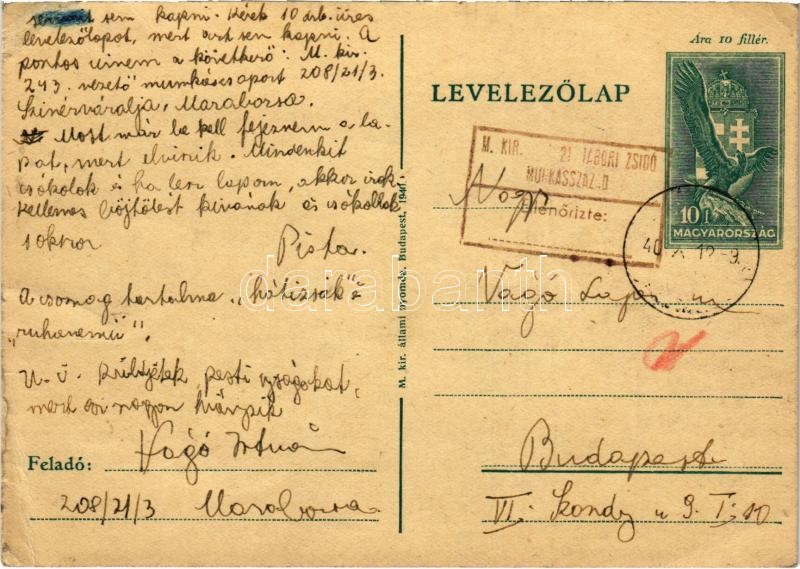 sem kapni. Kérek 10 drb. üres
levelezőlapot, mert azt sem kapni. A
pontos címem a következő: M. kir.
243. vezető munkáscsoport 208/21/3.
Szinérváralja, Maraborsa.
Most már be kell fejeznem a la-
pot, mert elviszik. Mindenkit
csókolok és ha lesz lapom, akkor írok
Kellemes böjtölést kívánok és csókollak
sokszor
Pista.
A csomag tartalma „hátizsák” és
„ruhanemű”.
U. i. Küldjetek pesti ujságokat,
mert az nagyon hiányzik
Feladó: Vágó István
208/21/3 Maraborsa
M. kir. állami nyomda, Budapest, 1940.
Ára 10 fillér.
LEVELEZŐLAP
10 f
MAGYARORSZÁG
M. KIR. 21 TÁBORI ZSIDÓ
MUNKÁSSZÁZAD
Ellenőrizte:
Nagys.
40 X 12-9
Vágó Lajos
Budapest
VI. Szondy u 9. I. 10
darabanth